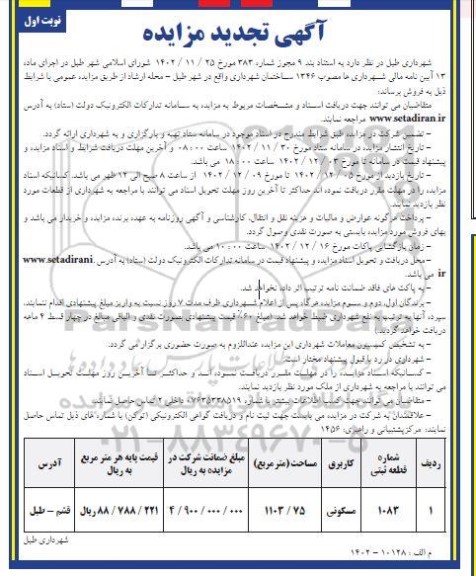 نوبت اول
آگهی تجدید مزایده
شهرداری طبل در نظر دارد به استناد بند ۹ مجوز شماره ۳۸۳ مورخ ۲۵ / ۱۱ / ۱۴۰۲ شورای اسلامی شهر طبل در اجرای ماده
۱۳ آیین نامه مالی شهرداری ها مصوب ۱۳۴۶ ساختمان شهرداری واقع در شهر طبل - محله ارشاد از طریق مزایده عمومی با شرایط
ذیل به فروش برساند:
متقاضیان می توانند جهت دریافت اسناد و مشخصات مربوط به مزایده به سامانه تدارکات الکترونیک دولت (ستاد) به آدرس
www.setadiran.ir مراجعه نمایند.
- تضمین شرکت در مزایده طبق شرایط مندرج در اسناد موجود در سامانه ستاد تهیه و بارگزاری و به شهرداری ارائه گردد.
- تاریخ انتشار مزایده در سامانه ستاد مورخ ۳۰ / ۱۱ / ۱۴۰۲ ساعت ۰۸:۰۰ و آخرین مهلت دریافت شرایط و اسناد مزایده و
پیشنهاد قیمت در سامانه تا مورخ ۰۳ / ۱۲ / ۱۴۰۲ ساعت ۱۸:۰۰ می باشد.
- تاریخ بازدید از مورخ ۰۵ / ۱۲ / ۱۴۰۲ تا مورخ ۰۹ / ۱۲ / ۱۴۰۲ از ساعت ۸ صبح الی ۱۲ ظهر می باشد. کسانیکه اسناد
مزایده را در مهلت مقرر دریافت نموده اند حداکثر تا آخرین روز مهلت تحویل اسناد می توانند با مراجعه به شهرداری از قطعات مورد
نظر بازدید نمایند.
- پرداخت هرگونه عوارض و مالیات و هزینه نقل و انتقال، کارشناسی و آگهی روزنامه به عهده برنده مزایده و خریدار می باشد و
بهای فروش مورد مزایده بایستی به صورت نقدی وصول گردد.
- زمان بازگشایی پاکات مورخ ۱۶ / ۱۲ / ۱۴۰۲ ساعت ۱۰:۰۰ می باشد.
- محل دریافت و تحویل اسناد مزایده و پیشنهاد قیمت در سامانه تدارکات الکترونیک دولت (ستاد) به آدرس www.setadirani.
ir می باشد.
- به پاکت های فاقد ضمانت نامه ترتیب اثر داده نخواهد شد.
- برندگان اول، دوم و سوم مزایده هرگاه پس از اعلام شهرداری ظرف مدت ۷ روز نسبت به واریز مبلغ پیشنهادی اقدام ننمایند.
سپرده آنها به ترتیب به نفع شهرداری ضبط خواهد شد. (مبلغ ۶۰٪ قیمت پیشنهادی بصورت نقدی و الباقی مبالغ در چهار قسط ۴ ماهه
دریافت خواهد گردید.)
- به تشخیص کمیسیون معاملات شهرداری این مزایده عنداللزوم به صورت حضوری برگزار می گردد.
- شهرداری در رد یا قبول پیشنهاد مختار است.
- کسانیکه اسناد مزایده را در مهلت مقرر دریافت نموده اند و حداکثر تا آخرین روز مهلت تحویل اسناد
می توانند با مراجعه به شهرداری از ملک مورد نظر بازدید نمایند.
- متقاضیان می توانند جهت کسب اطلاعات بیشتر با شماره ۰۷۶۳۵۳۳۸۵۱۹ داخلی ۲ تماس حاصل نمایند.
- علاقمندان به شرکت در مزایده می بایست جهت ثبت نام و دریافت گواهی الکترونیکی (توکن) با شماره های ذیل تماس حاصل
نمایند: مرکز پشتیبانی و راهبری: ۱۴۵۶
ردیف شماره قطعه ثبتی کاربری مساحت (متر مربع) مبلغ ضمانت شرکت در مزایده به ریال قیمت پایه هر متر مربع به ریال آدرس
۱ ۱۰۸۳ مسکونی ۱۱۰۳ / ۷۵ ۴ / ۹۰۰ / ۰۰۰ / ۰۰۰ ۸۸ / ۷۸۸ / ۲۲۱ ریال قشم - طبل
شهرداری طبل
م الف : ۱۰۱۲۸ - ۱۴۰۲
۰۲۱-۸۸۳۴۹۶۷۰-۵